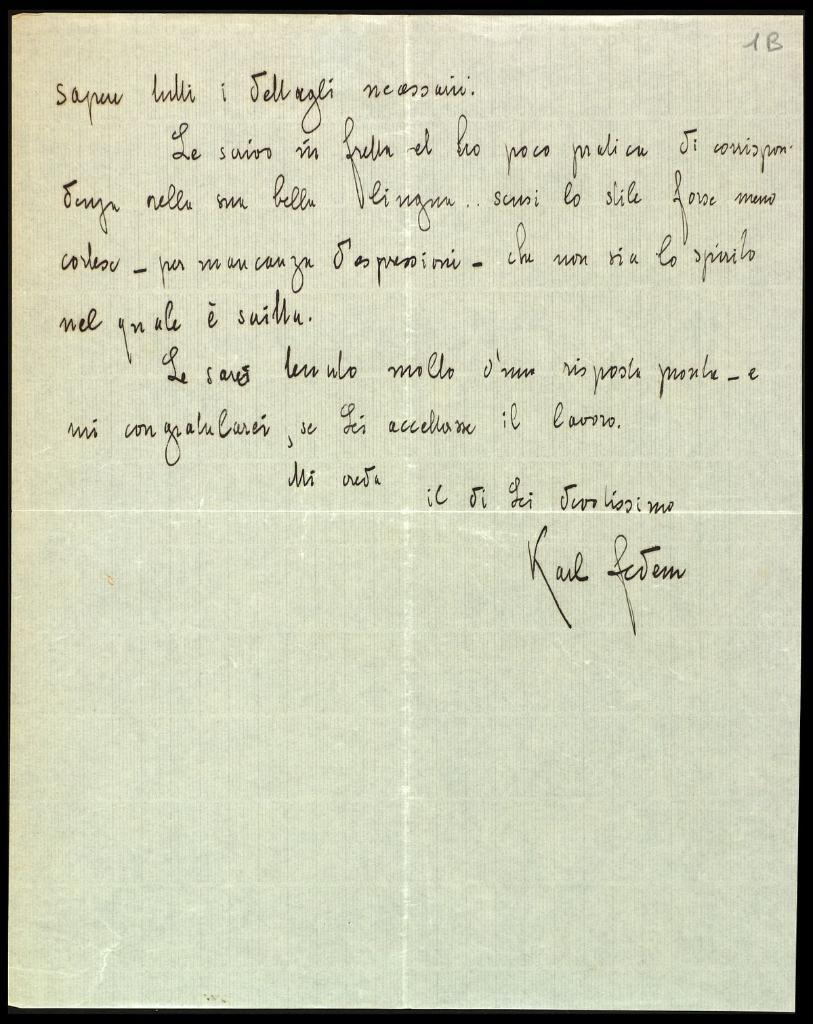 1B
sapere tutti i dettagli necessarii.
Le scrivo in fretta ed ho poco pratica di corrispon-
denza nella sua bella lingua.. scusi lo stile forse meno
cortese – per mancanza d'espressioni – che non sia lo spirito
nel quale è scritta.
Le sarei tenuto molto d'una risposta pronta – e
mi congratularei, se Lei accettasse il lavoro.
Mi creda
il di Lei devotissimo
Karl Federn